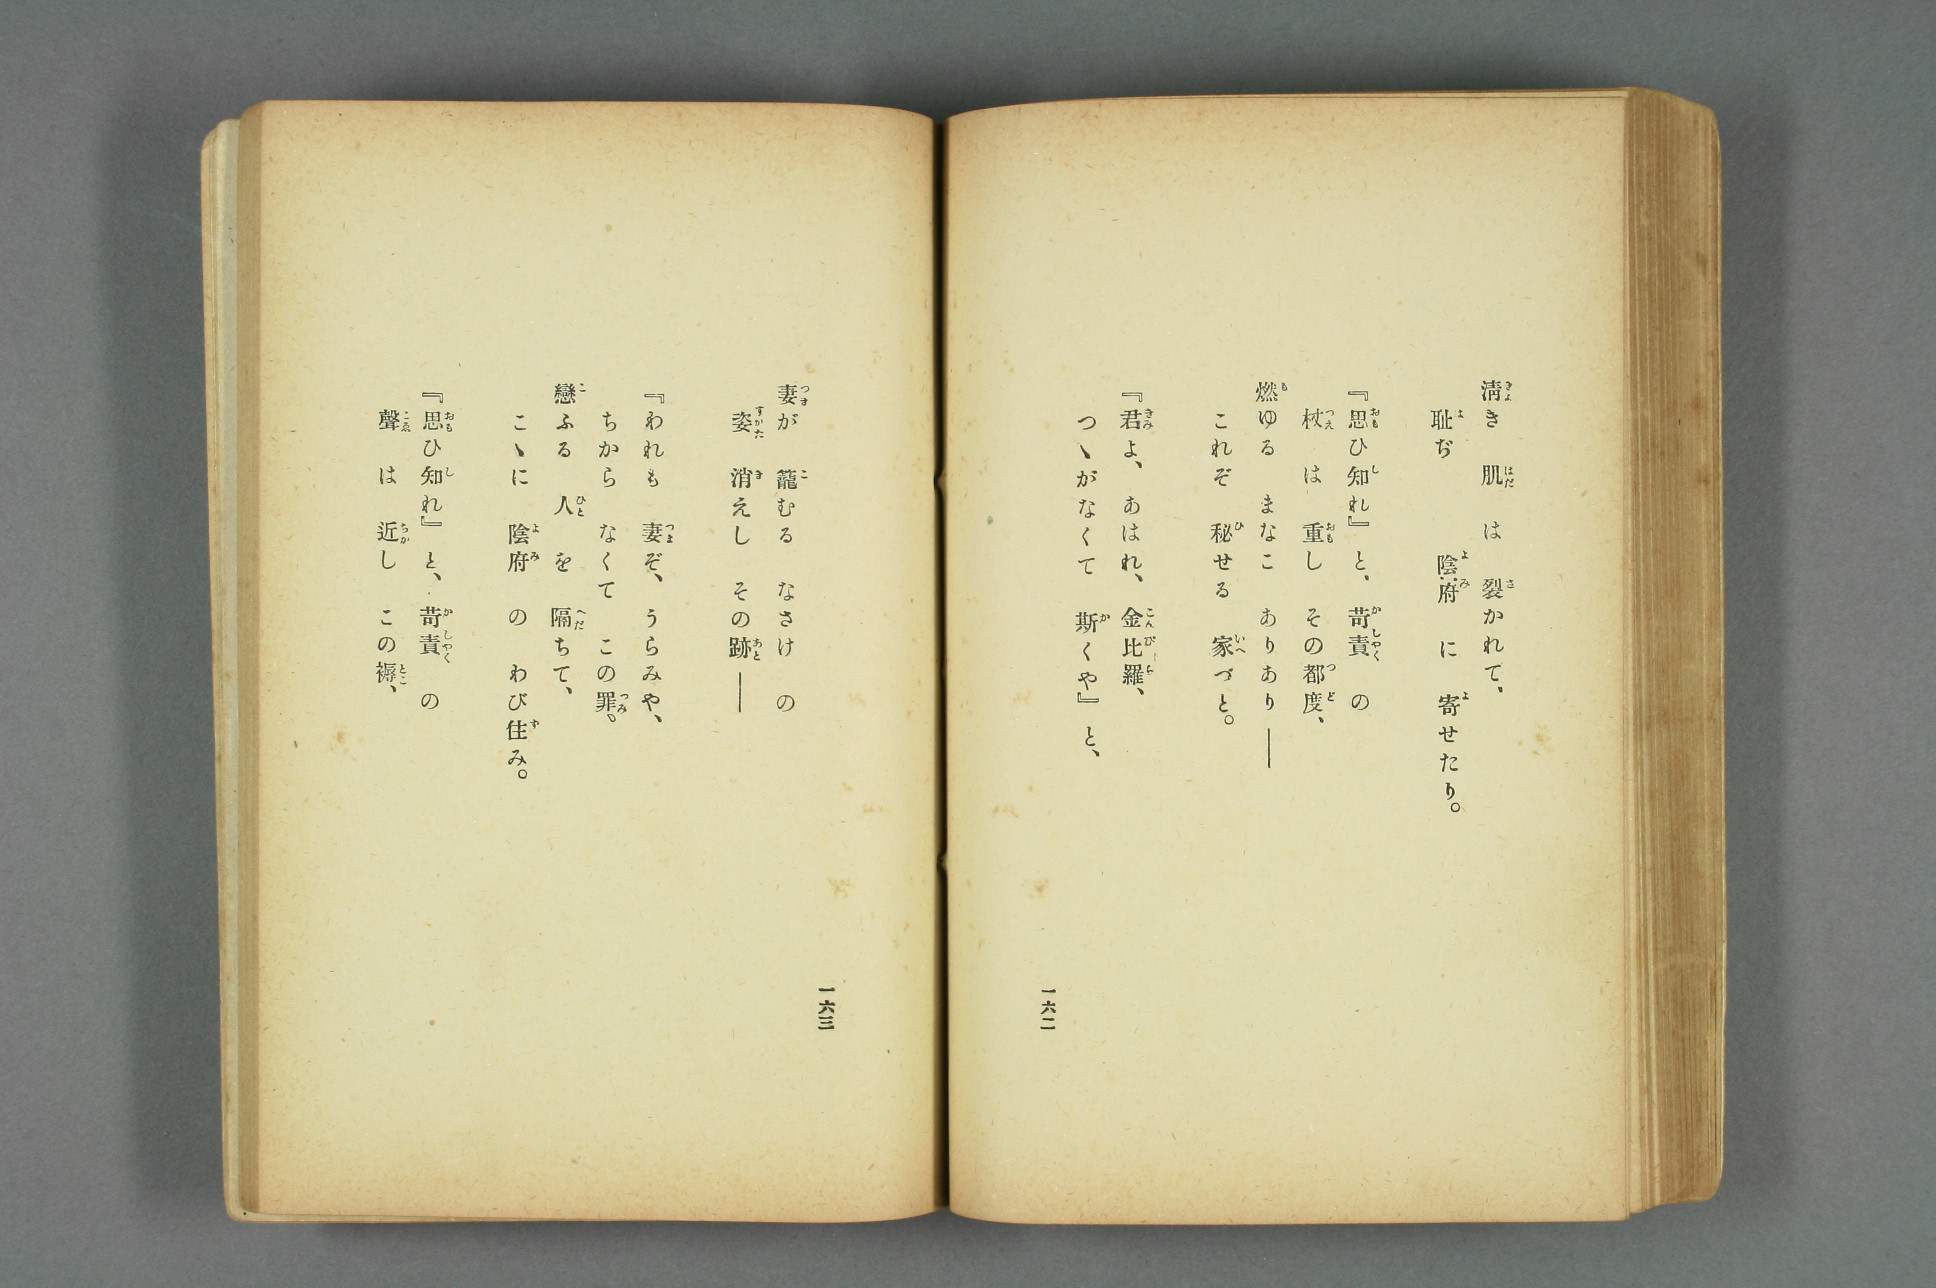 淸き 肌 は 裂かれて、
耻ぢ 陰府 に 寄せたり。
『思ひ知れ』と、苛責 の
杖 は 重し その都度、
燃ゆる まなこ ありあり――
これぞ 秘せる 家づと。
『君よ、あはれ、金比羅、
つゝがなくて 斯くや』と、
一六二
妻が 籠むる なさけ の
姿 消えし その跡――
『われも 妻ぞ、うらみや、
ちから なくて この罪。
戀ふる 人 を 隔ちて、
こゝに 陰府 の わび住み。
『思ひ知れ』と、苛責 の
聲 は 近し この褥、
一六三